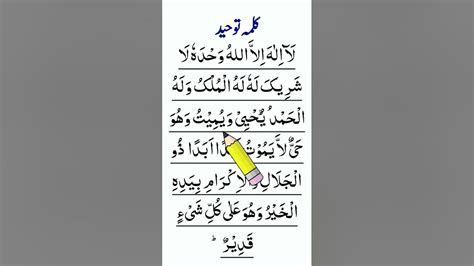 کلمہ توحید
لَآ اِلٰهَ اِلَّا اللهُ وَحْدَهٗ لَا
شَرِيْكَ لَهٗ لَهُ الْمُلْكُ وَلَهُ
الْحَمْدُ يُحْيِىْ وَيُمِيْتُ وَهُوَ
حَىٌّ لَّا يَمُوْتُ اَبَدًا ذُو
الْجَلَالِ بِيَدِهِ
الْخَيْرُ وَهُوَ عَلٰى كُلِّ شَىْءٍ
قَدِيْرٌ ؕ